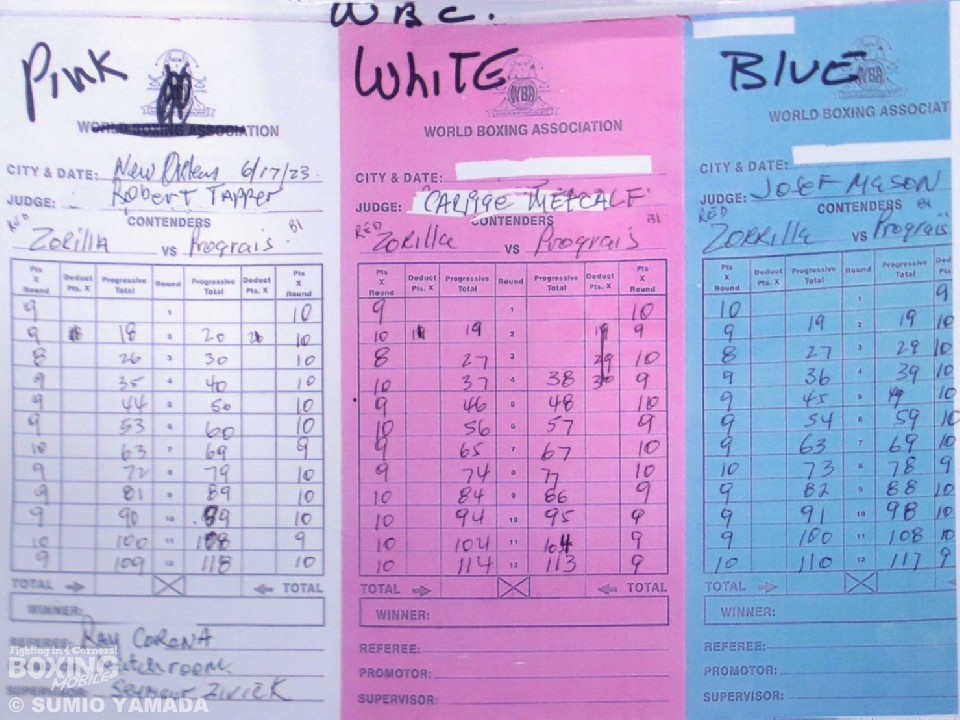 WBC.
Pink
WORLD BOXING ASSOCIATION
CITY & DATE: New Orleans 6/17/23.
JUDGE: Robert Tapper
CONTENDERS
RED Zorilla VS Prograis Bl
Pts X Round Deduct Pts. X Progressive Total Round Progressive Total Deduct Pts. X Pts X Round
9 1 10
9 18 2 20 10
8 26 3 30 10
9 35 4 40 10
9 44 5 50 10
9 53 6 60 10
10 63 7 69 9
9 72 8 79 10
9 81 9 89 10
9 90 10 99 10
10 100 11 108 9
9 109 12 118 10
TOTAL TOTAL
WINNER:
REFEREE: RAY CORONA
Matchroom
SUPERVISOR:
WHITE
WBA
WORLD BOXING ASSOCIATION
CITY & DATE:
JUDGE: METCALF
CONTENDERS
RED Zorilla VS Prograis Bl
Pts X Round Deduct Pts. X Progressive Total Round Progressive Total Deduct Pts. X Pts X Round
9 1 10
10 19 2 19 9
8 27 3 29 10
10 37 4 38 30 9
9 46 5 48 10
10 56 6 57 9
9 65 7 67 10
9 74 8 77 10
10 84 9 86 9
10 94 10 95 9
10 104 11 104 9
10 114 12 113 9
TOTAL TOTAL
WINNER:
REFEREE:
PROMOTOR:
SUPERVISOR:
BLUE
WBA
WORLD BOXING ASSOCIAT
CITY & DATE:
JUDGE: Josef Mason
CONTENDERS
RED Zorrilla VS Prograis Bl
Pts X Round Deduct Pts. X Progressive Total Round Progressive Total Ded Pts
10 1 9
9 19 2 19 10
8 27 3 29 10
9 36 4 39 10
9 45 5 49 10
9 54 6 59 10
9 63 7 69 10
10 73 8 78 9
9 82 9 88 10
9 91 10 98 10
9 100 11 108 10
10 110 12 117 9
TOTAL TO
WINNER:
REFEREE:
PROMOTOR:
SUPERVISOR:
Fighting in 4 Corners!
BOXING
MOBILE
© SUMIO YAMADA